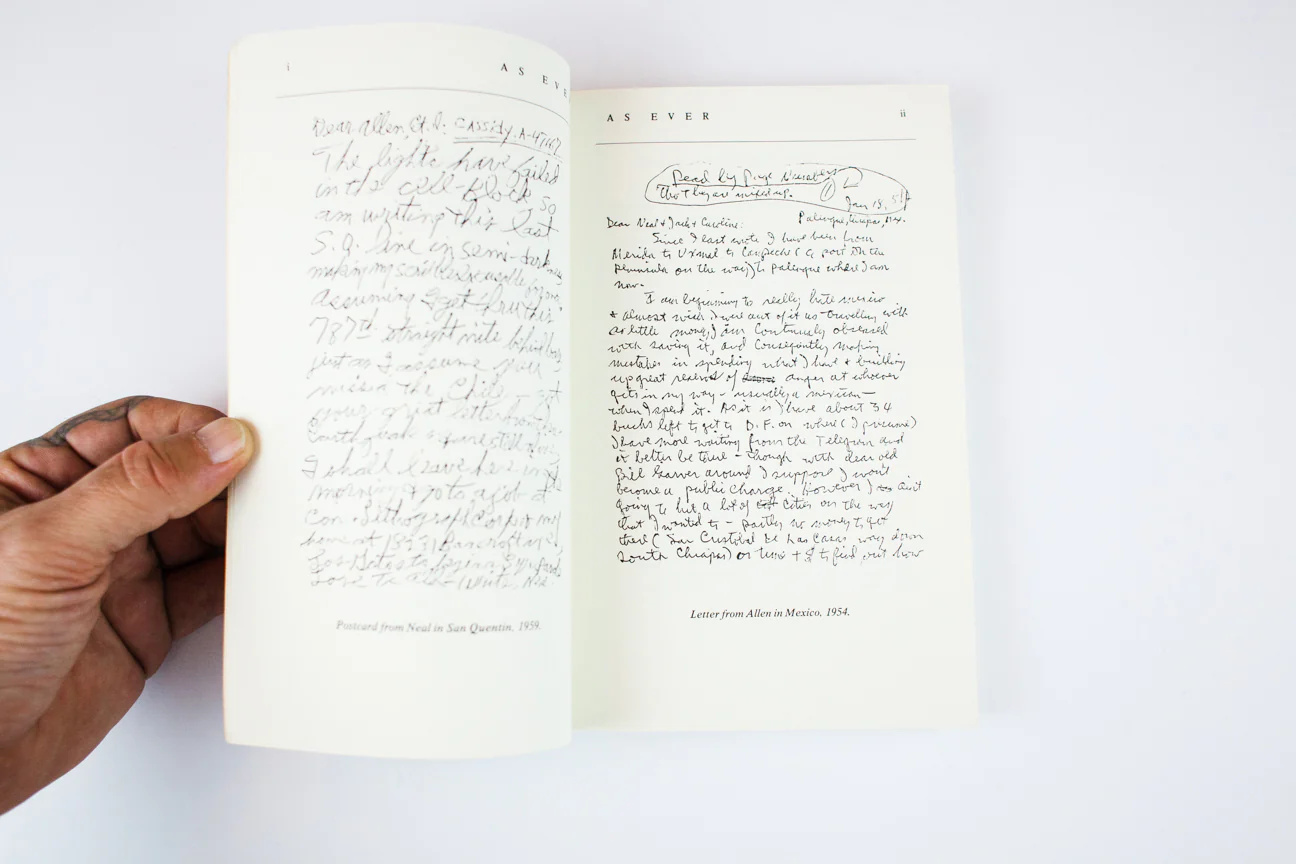 i
AS EVE
Dear Allen, Cassidy. A-47667
The lights have failed
in the cell-block so
am writing this last
S.Q. line in semi-dark
making my scribbles
Assuming I get thru this
787th straight nite behind
just as I assume you
missed the Chile
your great letter
Earth
I shall leave here in
morning, & go to a job
Con. Lithograph Corp
home at Bancroft Ave,
Los Gatos to begin
Love to all
Postcard from Neal in San Quentin, 1959.
AS EVER
ii
Read by Page Numbers
Tho they are mixed up.
Jan 18, 54
Palenque, Chiapas, Mex.
Dear Neal & Jack & Caroline:
Since I last wrote I have been from
Merida to Uxmal to Campeche (a port on the
Peninsula on the way) to palenque where I am
now.
I am beginning to really hate mexico
& almost wish I were out of it as travelling with
as little money, I am continually obsessed
with saving it, and consequently making
mistakes in spending what I have & building
up great reserves of anger at whoever
gets in my way – usually a mexican –
when I spend it. As it is I have about 34
bucks left to get to D.F. on where (I presume)
I have more waiting from the Telegram and
it better be true – though with dear old
Bill Garver around I suppose I won't
become a public charge. However, I ain't
going to hit a lot of cities on the way
that I wanted to – partly no money to get
there (San Cristobal de las Casas way down
South Chiapas) or time & to find out how
Letter from Allen in Mexico, 1954.